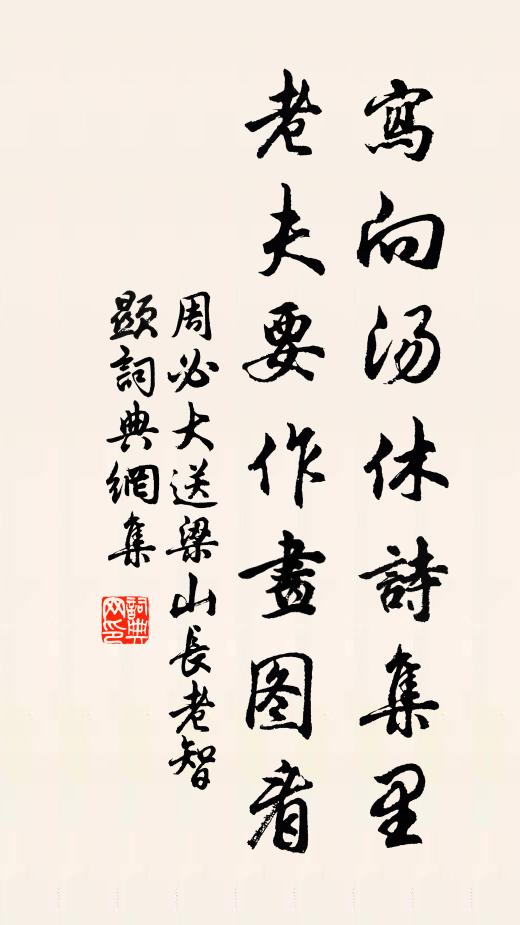 寫向汤休詩集里
老夫要作畫图看
周必大送梁山長老智
顯詞典網集
詞典网印